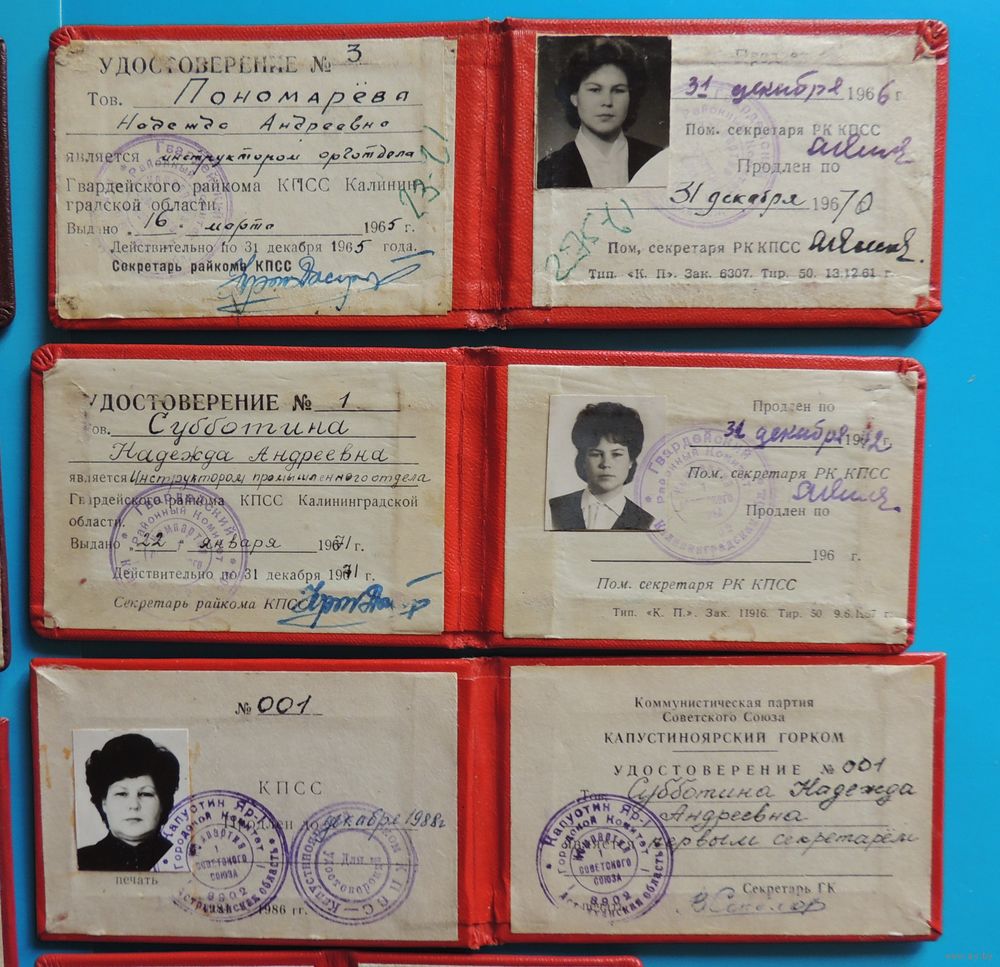 УДОСТОВЕРЕНИЕ № 3
Тов. Пономарёва
Надежда Андреевна
является инструктором орготдела
Гвардейского райкома КПСС Калинин-
градской области.
Выдано „16„ марта 1965 г.
Действительно по 31 декабря 1965 года.
Секретарь райкома КПСС
23-21
31 декабря 1966 г.
Пом. секретаря РК КПСС
Продлен по
31 декабря 1970
Пом. секретаря РК КПСС
Тип. «К. П». Зак. 6307. Тир. 50. 13.12.61 г.
УДОСТОВЕРЕНИЕ № 1
Тов. Субботина
Надежда Андреевна
является Инструктором промышленного отдела
Гвардейского райкома КПСС Калининградской
области.
Выдано „22„ января 1971 г.
Действительно по 31 декабря 1971 г.
Секретарь райкома КПСС
Продлен по
31 декабря 1972 г.
Пом. секретаря РК КПСС
Продлен по
196 г.
Пом. секретаря РК КПСС
Тип. «К. П.». Зак. 11916. Тир. 50
Гвардейский
Районный Комитет
№ 001
КПСС
декабря 1988 г
печать
1986 гг.
Капустин Яр-1
Городской Комитет
Компартия
Советского
Союза
8902
Астраханская область
Для
удостоверений
Коммунистическая партия
Советского Союза
КАПУСТИНОЯРСКИЙ ГОРКОМ
УДОСТОВЕРЕНИЕ № 001
Тов. Субботина Надежда
Андреевна
первым секретарём
Секретарь ГК
Капустин Яр-1
Городской Комитет
Компартия
Советского
Союза
8902
Астраханская область